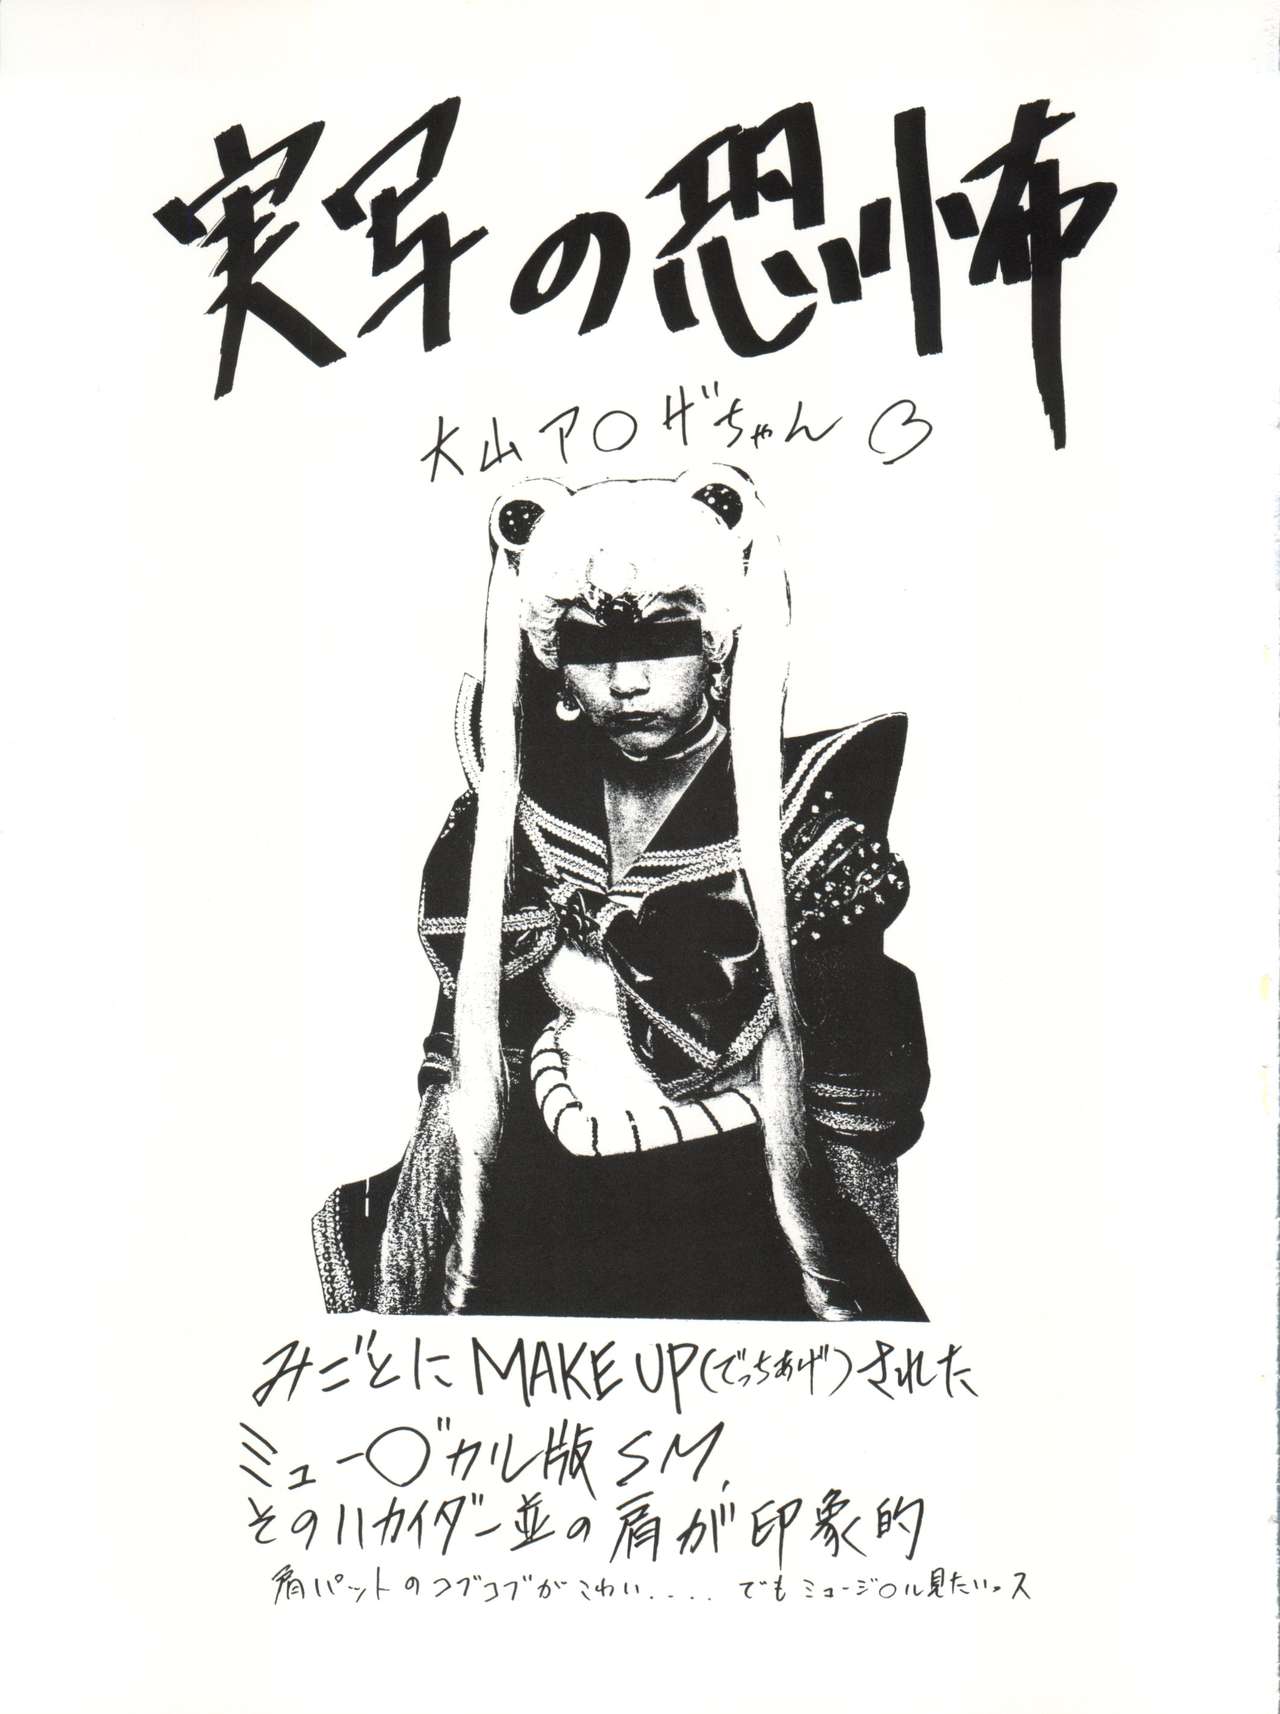 実写の恐怖
大山ア○ザちゃん♡
みごとにMAKE UP(でっちあげ)された
ミュー○゛カル版SM.
そのハカイダー並の肩が印象的
肩パットのコブコブがこわい.... でもミュージ○ル見たいっス